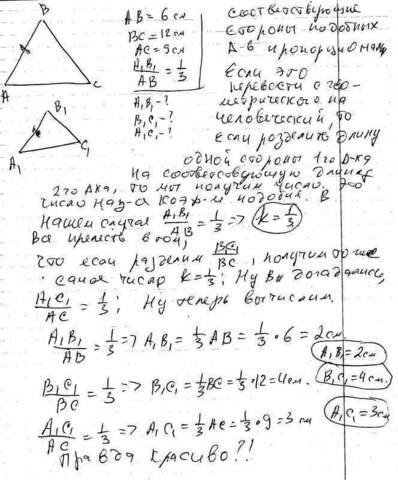 B
A
C
B₁
A₁
C₁
AB = 6 см
BC = 12 см
AC = 9 см
A₁B₁/AB = 1/3
A₁B₁ - ?
B₁C₁ - ?
A₁C₁ - ?
Соответствующие
стороны подобных
Δ-в пропорциональны
Если это
перевести с гео-
метрического на
человеческий, то
если разделить длину
одной стороны 1го Δ-ка
на соответствующую длину
2го Δка, то мы получим число. Это
число наз-а коэф-м подобия. В
нашем случае A₁B₁/AB = 1/3 => k = 1/3
Вся прелесть в том,
что если разделим B₁C₁/BC, получим то же
самое число k = 1/3; Ну Вы догадались,
A₁C₁/AC = 1/3; Ну теперь вычислим.
A₁B₁/AB = 1/3 => A₁B₁ = 1/3 AB = 1/3 · 6 = 2 см
A₁B₁ = 2 см
B₁C₁/BC = 1/3 => B₁C₁ = 1/3 BC = 1/3 · 12 = 4 см.
B₁C₁ = 4 см.
A₁C₁/AC = 1/3 => A₁C₁ = 1/3 AC = 1/3 · 9 = 3 см
A₁C₁ = 3 см
Правда красиво?!